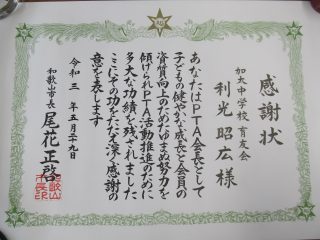 感謝状
加太中学校 育友会
利光昭広様
あなたはPTA会長として
子どもの健やかな成長と会員の
資質向上のためたゆまぬ努力を
傾けられPTA活動推進のために
多大な功績を残されました
ここにその功をたたえ深く感謝の
意を表します
令和三年五月二十九日
和歌山市長 尾花正啓
和歌山市長印